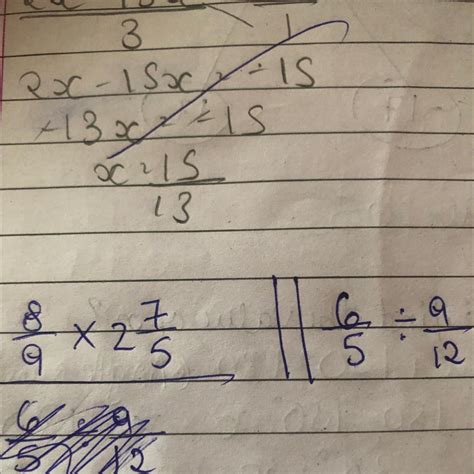 3 1
2x - 15x = -15
-13x = -15
x = 15/13
8/9 × 2 7/5 || 6/5 ÷ 9/12
6/5 9/12